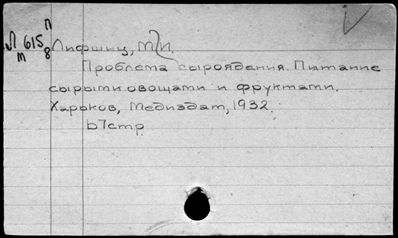 П
Л 615 Лифшиц, М.И.
т 8
Проблема сыроядения. Питание
сырыми овощами и фруктами.
Харьков, Медиздат, 1932.
67стр